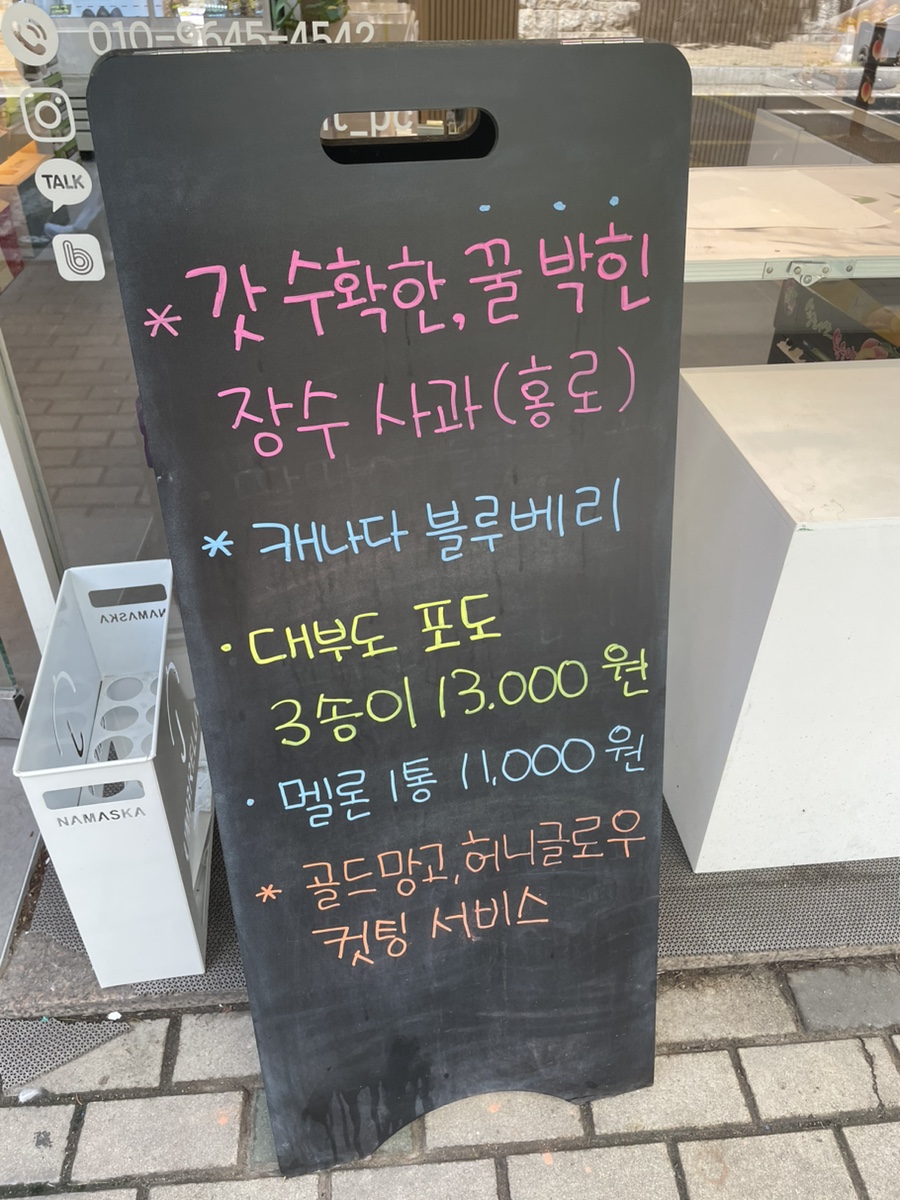 010-9645-4542
TALK
b
* 갓 수확한, 꿀 박힌
장수 사과 (홍로)
* 캐나다 블루베리
· 대부도 포도
3송이 13.000 원
· 멜론 1통 11,000 원
* 골드망고, 허니글로우
컷팅 서비스
NAMASKA
NAMASKA